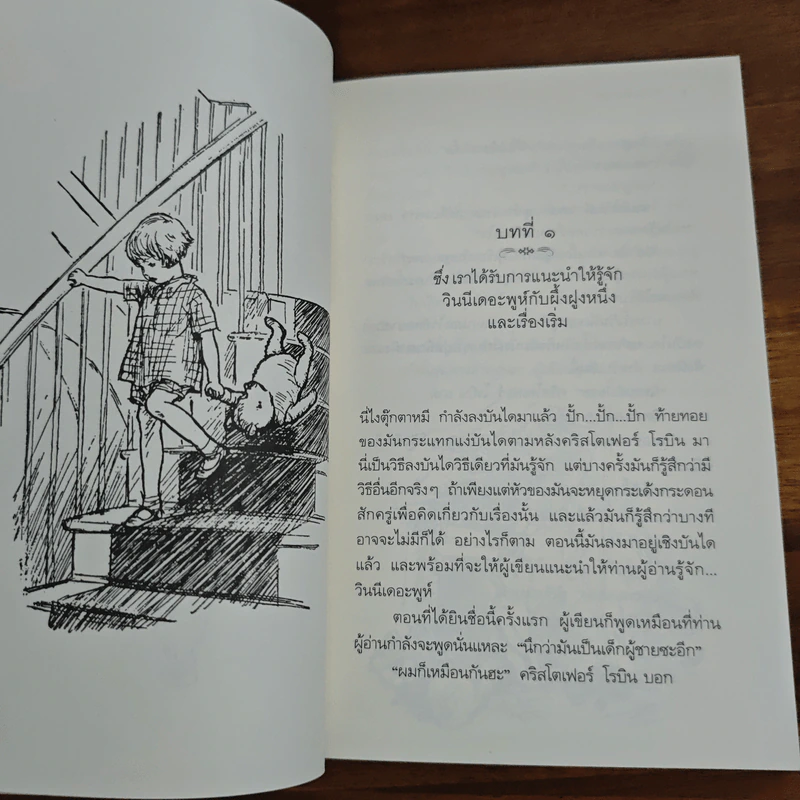 บทที่ ๑
ซึ่ง เราได้รับการแนะนำให้รู้จัก
วินนีเดอะพูห์กับผึ้งฝูงหนึ่ง
และเรื่องเริ่ม
นี่ไงตุ๊กตาหมี กำลังลงบันไดมาแล้ว ปั้ก...ปั้ก...ปั้ก ท้ายทอย
ของมันกระแทกแง่บันไดตามหลังคริสโตเฟอร์ โรบิน มา
นี่เป็นวิธีลงบันไดวิธีเดียวที่มันรู้จัก แต่บางครั้งมันก็รู้สึกว่ามี
วิธีอื่นอีกจริงๆ ถ้าเพียงแต่หัวของมันจะหยุดกระเด้งกระดอน
สักครู่เพื่อคิดเกี่ยวกับเรื่องนั้น และแล้วมันก็รู้สึกว่าบางที
อาจจะไม่มีก็ได้ อย่างไรก็ตาม ตอนนี้มันลงมาอยู่เชิงบันได
แล้ว และพร้อมที่จะให้ผู้เขียนแนะนำให้ท่านผู้อ่านรู้จัก...
วินนีเดอะพูห์
ตอนที่ได้ยินชื่อนี้ครั้งแรก ผู้เขียนก็พูดเหมือนที่ท่าน
ผู้อ่านกำลังจะพูดนั่นแหละ “นึกว่ามันเป็นเด็กผู้ชายซะอีก”
“ผมก็เหมือนกันฮะ” คริสโตเฟอร์ โรบิน บอก